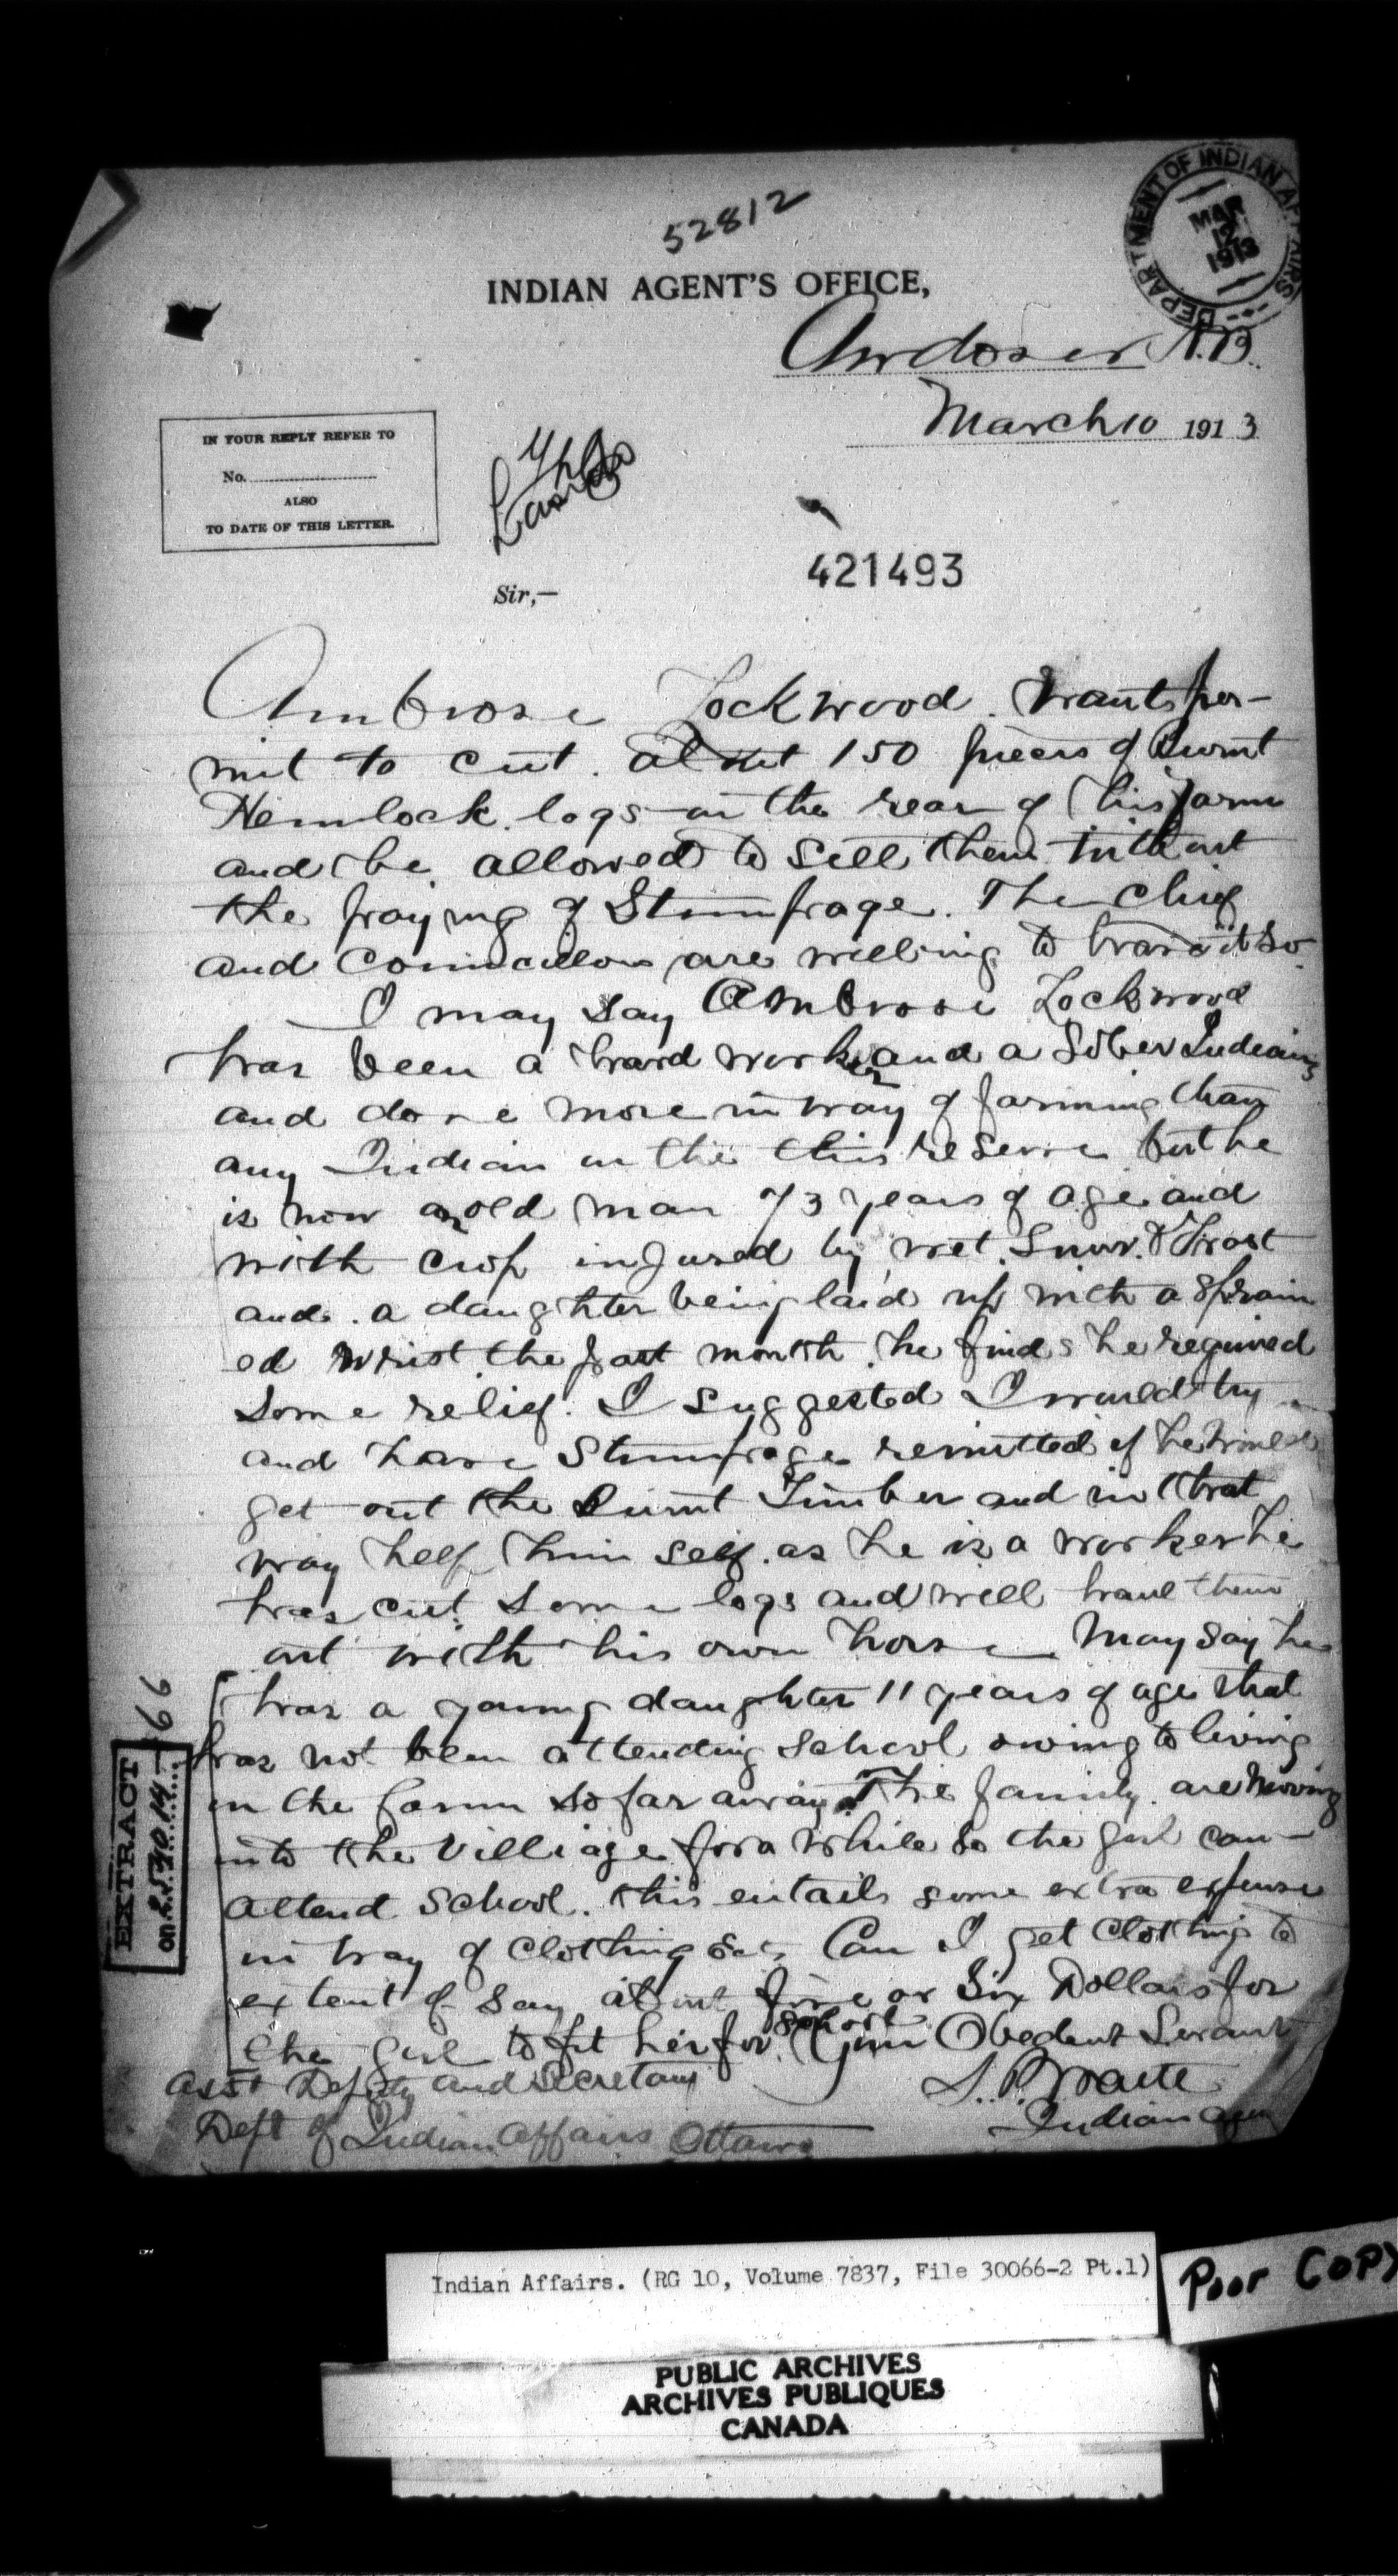 52812
DEPARTMENT OF INDIAN AFFAIRS
MAR
12
1913
INDIAN AGENT'S OFFICE,
Andover N.B.
March 10 1913
IN YOUR REPLY REFER TO
No.
ALSO
TO DATE OF THIS LETTER.
421493
Sir,—
Ambrose Lockwood. wants per-
mit to cut. about 150 pieces of Burnt
Hemlock. logs on the rear of his farm
and be allowed to sell them without
the paying of Stumpage. The Chief
and Councillors are willing to have it so.
I may say Ambrose Lockwood
has been a hard worker and a Sober Indian
and done more in way of farming than
any Indian on the this reserve but he
is now an old man 73 years of age and
with crop injured by wet. Snow. & Frost
and. a daughter being laid up with a sprain
ed wrist the past month. he finds he required
Some relief. I suggested I would try
and have Stumpage remitted if he would
get out the Burnt Timber and in that
way help him self. as he is a worker he
has cut some logs and will haul them
out with his own horse May say he
has a young daughter 11 years of age that
has not been attending School owing to living
on the farm so far away. The family. are moving
into the Villiage for a while so the girl can
attend School. this entails some extra expense
in way of Clothing &c. Can I get Clothing to
extent of say about five or Six Dollars for
the girl to fit her for school Your Obedient Servant
Asst Deputy and Secretary
J. P. Waite
Dept of Indian Affairs Ottawa
Indian Agent
66
EXTRACT
on 253014
Indian Affairs. (RG 10, Volume 7837, File 30066-2 Pt.1)
Poor COPY
PUBLIC ARCHIVES
ARCHIVES PUBLIQUES
CANADA